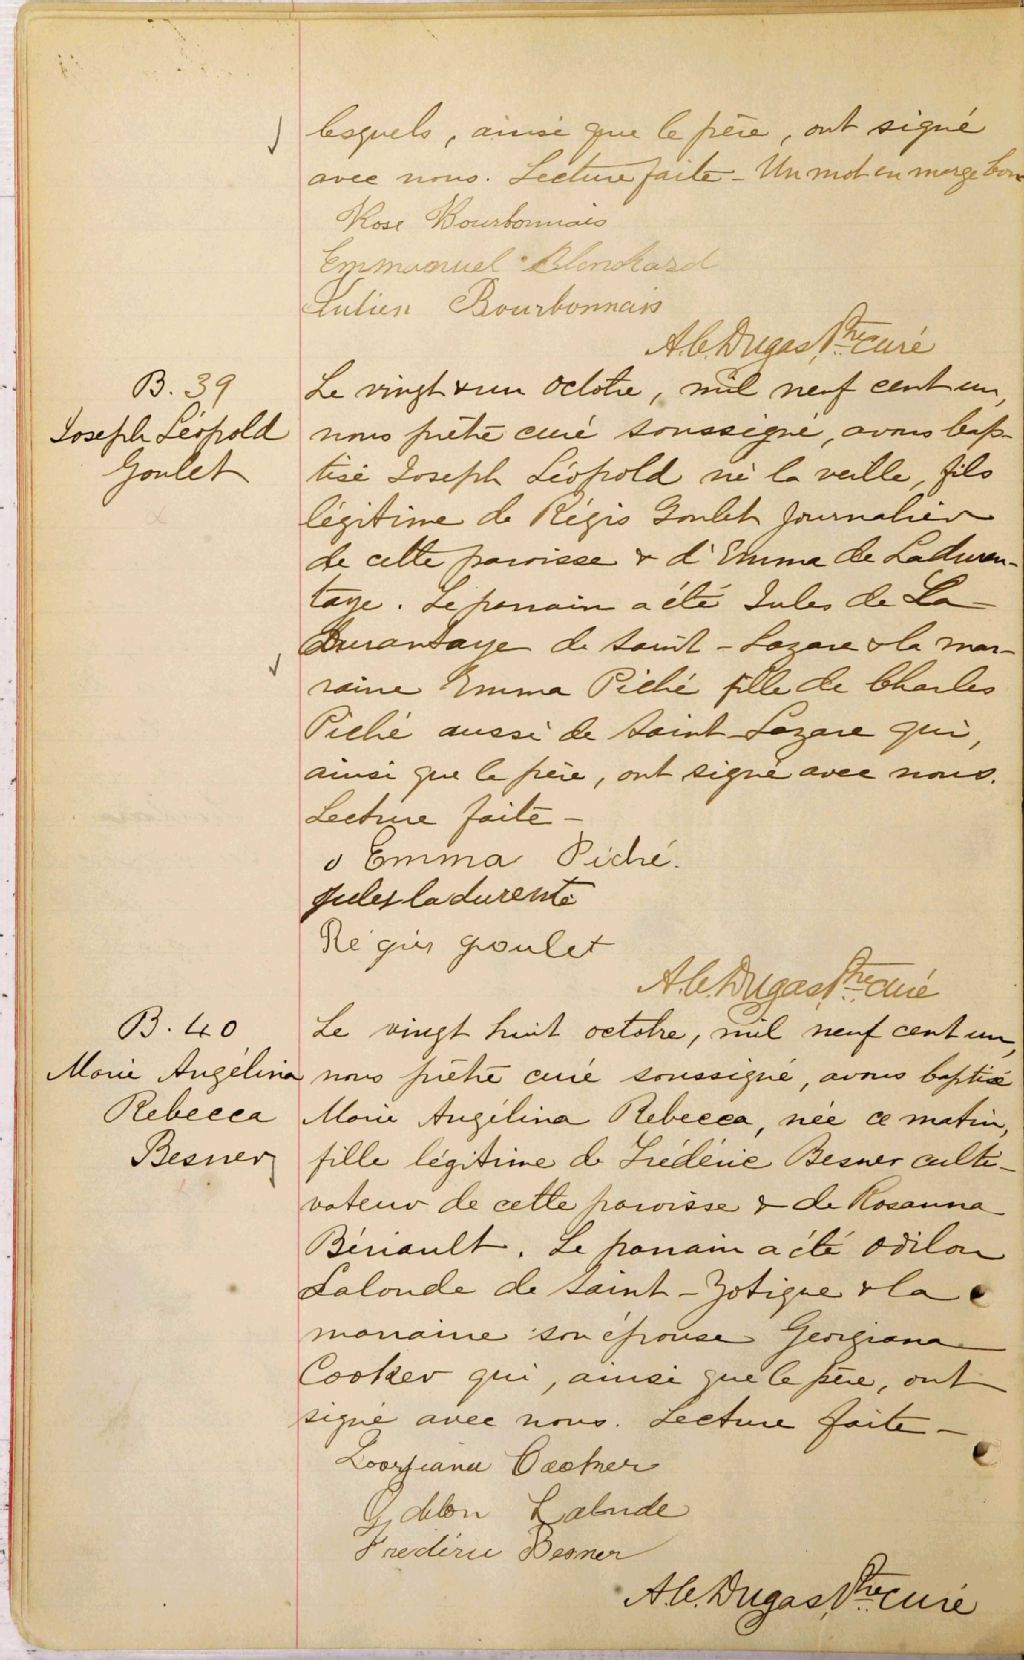 lesquels, ainsi que le père, ont signé
avec nous. Lecture faite - Un mot en marge bon
Rose Bourbonnais
Emmanuel Blanchard
Julien Bourbonnais
A. C. Dugas, Ptre curé
B. 39
Joseph Léopold
Goulet
Le vingt & un octobre, mil neuf cent un,
nous prêtre curé soussigné, avons bap-
tisé Joseph Léopold né la veille, fils
légitime de Régis Goulet journalier
de cette paroisse & d'Emma de Laduran-
taye. Le parrain a été Jules de La
Durantaye de Saint-Lazare & la mar-
raine Emma Piché fille de Charles
Piché aussi de Saint-Lazare qui,
ainsi que le père, ont signé avec nous.
Lecture faite -
Emma Piché.
Jules ladurente
Régis goulet
A. C. Dugas, Ptre curé
B. 40
Marie Angélina
Rebecca
Besner
Le vingt huit octobre, mil neuf cent un,
nous prêtre curé soussigné, avons baptisé
Marie Angélina Rebecca, née ce matin,
fille légitime de Frédéric Besner culti-
vateur de cette paroisse & de Rosanna
Bériault. Le parrain a été Odilon
Lalonde de Saint-Zotique & la
marraine son épouse Georgiana
Cooker qui, ainsi que le père, ont
signé avec nous. Lecture faite -
Lalonde
Frédéric Besner
A. C. Dugas, Ptre curé